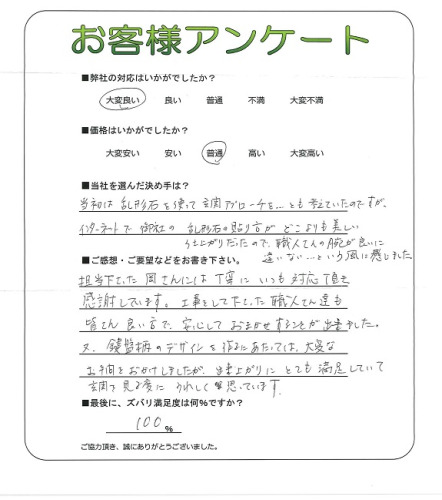 お客様アンケート
■弊社の対応はいかがでしたか?
大変良い 良い 普通 不満 大変不満
■価格はいかがでしたか?
大変安い 安い 普通 高い 大変高い
■当社を選んだ決め手は?
当初は乱形石を使って玄関アプローチを…とも考えていたのですが、
インターネットで御社の乱形石の貼り方がどこよりも美しい
仕上がりだったので、職人さんの腕が良いに
違いない…という風に感じました
■ご感想・ご要望などをお書き下さい。
担当下さった岡さんには丁寧にいつも対応頂き
感謝しています。工事をして下さった職人さん達も
皆さん良い方で、安心しておまかせすることが出来ました。
又、鍵盤柄のデザインを作るにあたっては、大変な
お手間をおかけしましたが、出来上がりにとても満足していて
玄関を見る度にうれしく思っています。
■最後に、ズバリ満足度は何%ですか?
100%
ご協力頂き、誠にありがとうございました。